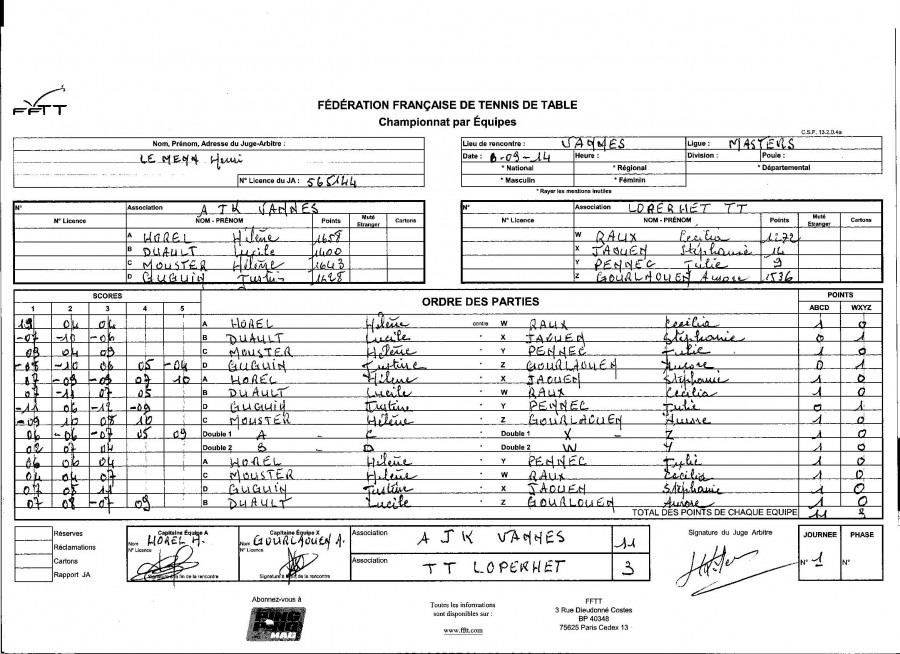 FFTT
FÉDÉRATION FRANÇAISE DE TENNIS DE TABLE
Championnat par Équipes
C.S.F. 13.2.D.4a
Nom, Prénom, Adresse du Juge-Arbitre :
LE MENN Henri
N° Licence du JA : 565144
Lieu de rencontre : VANNES Ligue : MASTERS
Date : -09-14 Heure : Division : Poule :
* National * Régional * Départemental
* Masculin * Féminin
* Rayer les mentions inutiles
N° Association A J K VANNES
N° Licence NOM - PRÉNOM Points Muté Etranger Cartons
A HOREL Hélène 1658
B DUAULT Lucile 1400
C MOUSTER Hélène 1643
D GUGUIN Justine 1628
N° Association LOPERHET TT
N° Licence NOM - PRÉNOM Points Muté Etranger Cartons
W RAUX Cecilia 1272
X JAOUEN Stéphanie 14
Y PENNEC Julie 9
Z GOURLAOUEN Aurore 1536
SCORES ORDRE DES PARTIES POINTS
1 2 3 4 5 ABCD WXYZ
19 04 04 A HOREL Hélène contre W RAUX Cecilia 1 0
-07 -10 -06 B DUAULT Lucile " X JAOUEN Stéphanie 0 1
09 04 03 C MOUSTER Hélène " Y PENNEC Julie 1 0
-08 -10 08 05 -04 D GUGUIN Justine " Z GOURLAOUEN Aurore 0 1
07 -09 -09 07 10 A HOREL Hélène " X JAOUEN Stéphanie 1 0
07 -11 07 05 B DUAULT Lucile " W RAUX Cecilia 1 0
-11 06 -12 -09 D GUGUIN Justine " Y PENNEC Julie 0 1
-09 10 08 10 C MOUSTER Hélène " Z GOURLAOUEN Aurore 1 0
06 -06 -07 05 09 Double 1 A - C " Double 1 X - Z 1 0
02 07 04 Double 2 B - D " Double 2 W - Y 1 0
06 06 04 A HOREL Hélène " Y PENNEC Julie 1 0
04 04 07 C MOUSTER Hélène " W RAUX Cecilia 1 0
07 05 11 D GUGUIN Justine " X JAOUEN Stéphanie 1 0
07 08 -07 09 B DUAULT Lucile " Z GOURLOUEN Aurore 1 0
TOTAL DES POINTS DE CHAQUE EQUIPE 11 3
Réserves
Réclamations
Cartons
Rapport JA
Capitaine Équipe A
Nom HOREL H.
N° Licence
Signature à la fin de la rencontre
Capitaine Équipe X
Nom GOURLAOUEN A.
N° Licence
Signature à la fin de la rencontre
Association A J K VANNES 11
Association TT LOPERHET 3
Signature du Juge Arbitre
JOURNEE PHASE
N° 1 N°
Abonnez-vous à
PING PONG MAG
Toutes les informations
sont disponibles sur :
www.fftt.com
FFTT
3 Rue Dieudonné Costes
BP 40348
75625 Paris Cedex 13